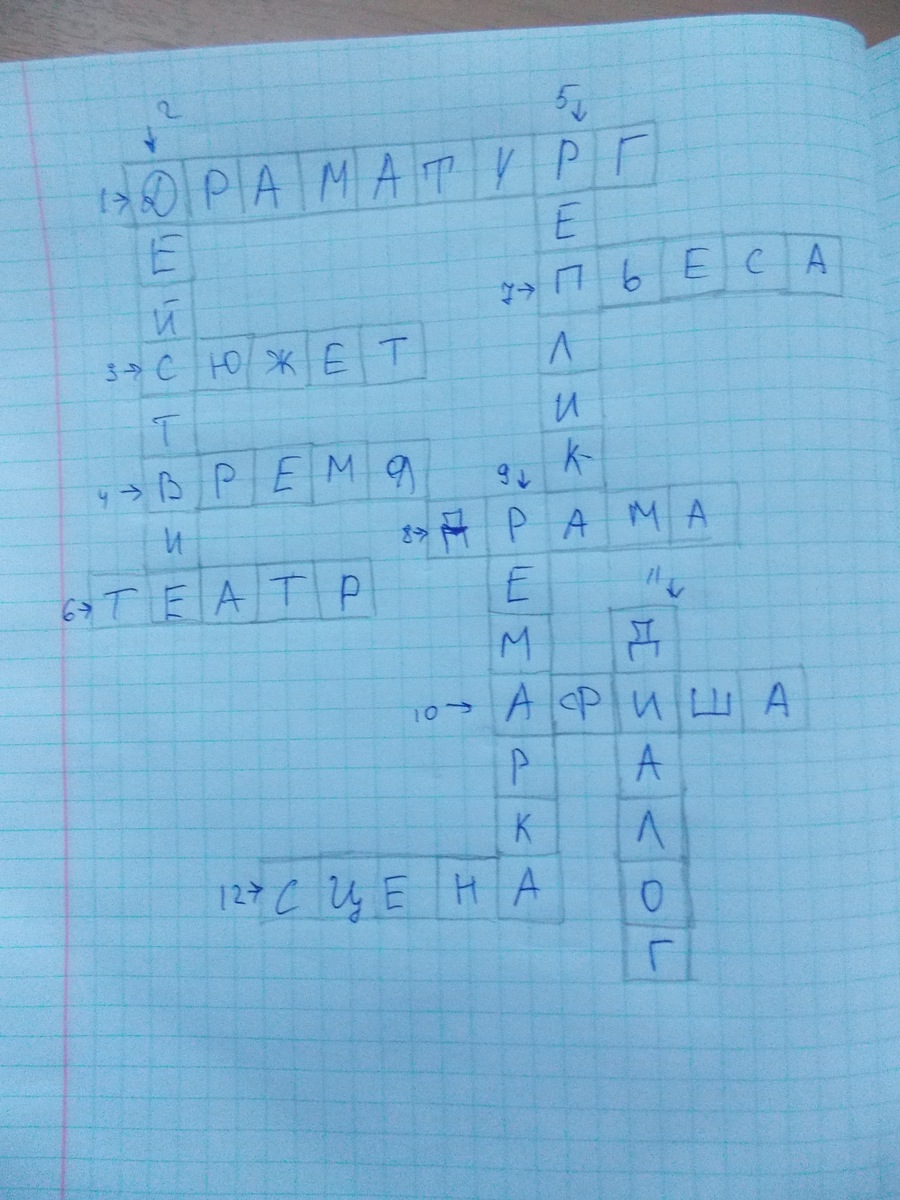 2 5
1 ДРАМАТУРГ
Е Е
7 ПЬЕСА
Й
3 СЮЖЕТ Л
Т И
4 ВРЕМЯ К
9
8 ДРАМА
И
6 ТЕАТР Е 11
М Д
10 АФИША
Р А
К Л
12 СЦЕНА О
Г